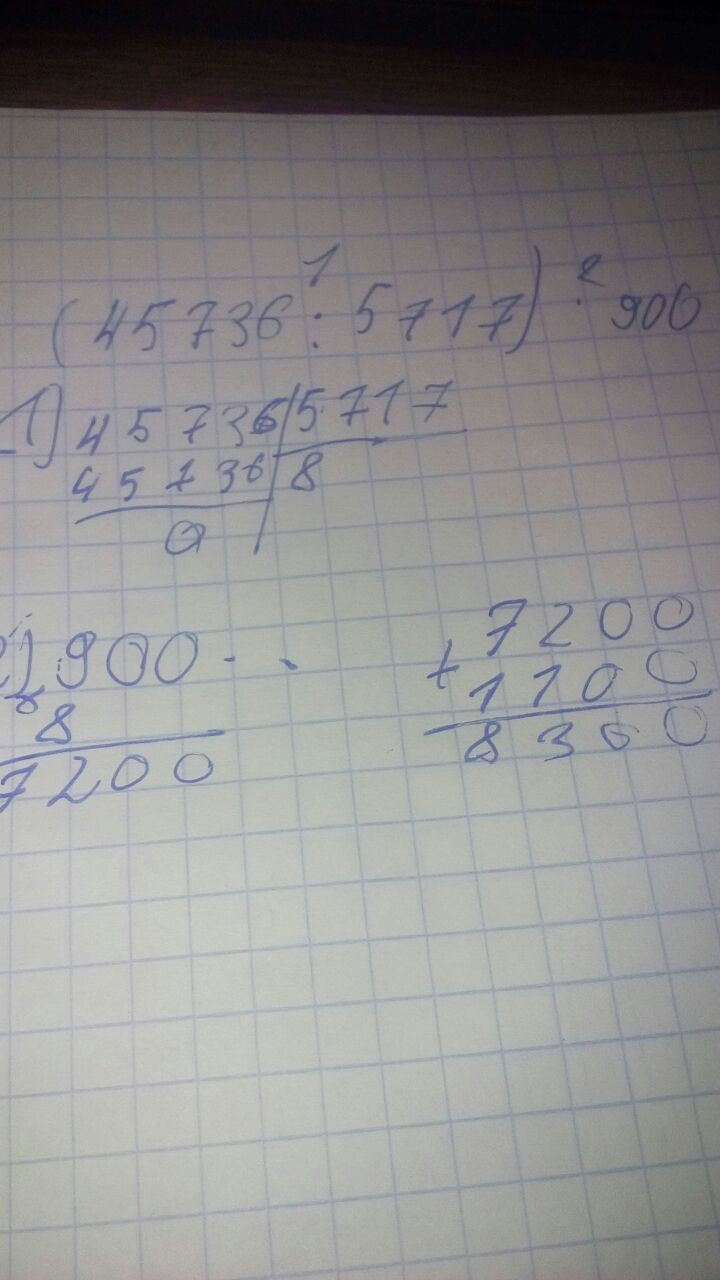 1 2
(45736 : 5717) · 900
1) 45736 | 5717
45736 | 8
0
2) 900
x 8
7200
7200
+ 1100
8300